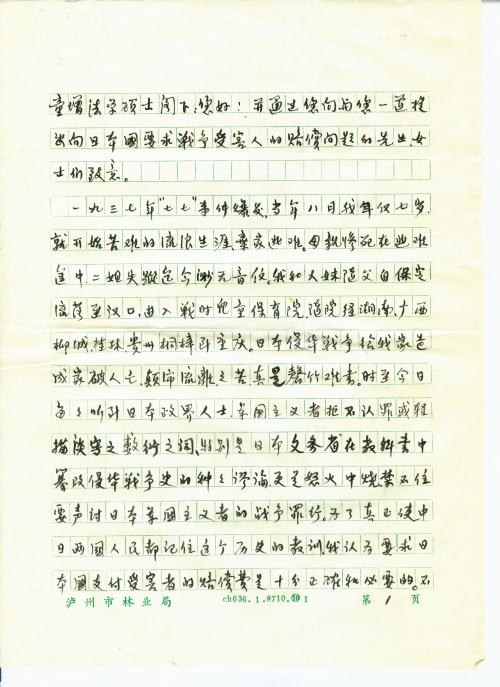 童增法学硕士阁下：您好！并通过您向与您一道提
出向日本国要求战争受害人的赔偿问题的先生、女
士们致意。
一九三七年"七七"事件爆发，当年八月，我年仅七岁，
就开始苦难的流浪生涯，弃家逃难。母亲惨死在逃难
途中，二姐失踪迄今渺无音信。我和大妹随父自保定
流落至汉口，由入战时儿童保育院，随院经湖南、广西
柳城、桂林、贵州桐梓到重庆。日本侵华战争给我家造
成家破人亡，颠沛流离之苦真是罄竹难书。时至今日
每每听到日本政界人士，军国主义者拒不认罪或轻
描淡写之敷衍之词，特别是日本文部省在教科书中
篡改侵华战争史的种种谬论，更是怒火中烧禁不住
要声讨日本军国主义者的战争罪行，为了真正使中
日两国人民都记住这个历史的教训，我认为要求日
本国支付受害者的赔偿费是十分正确和必要的。不
泸州市林业局 ch036.1.8710. 1 第 1 页